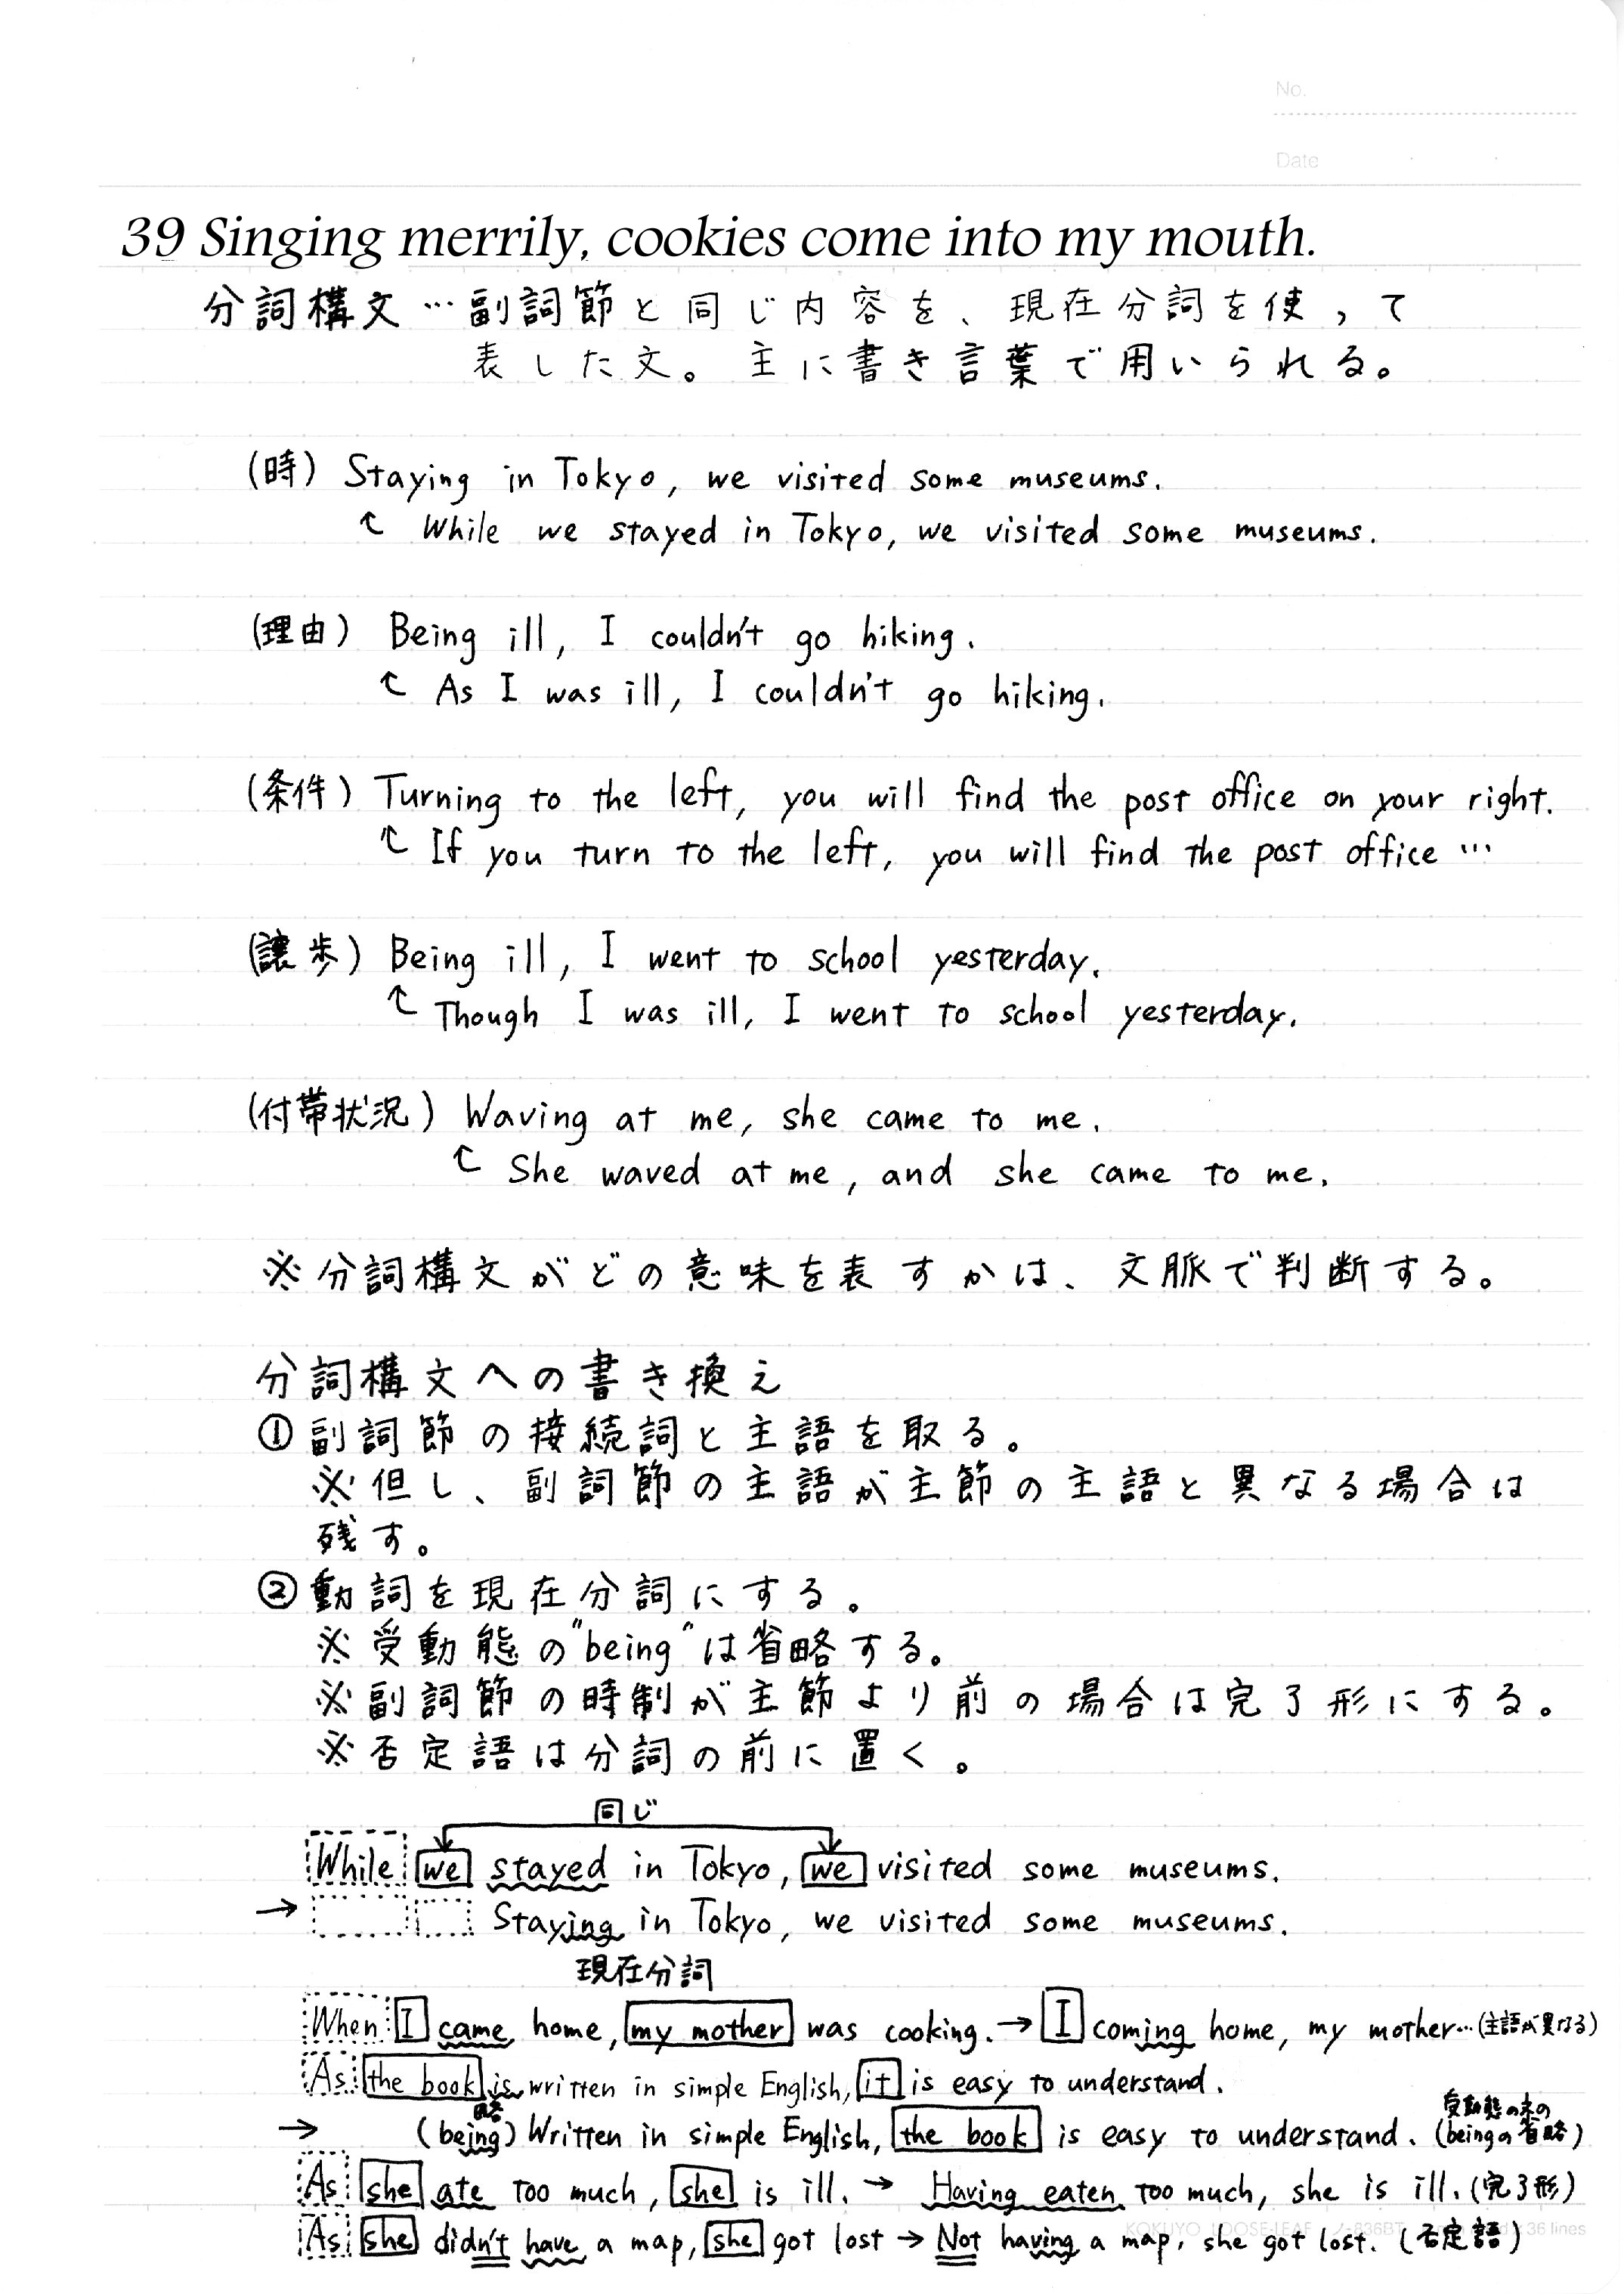 No.
Date
39 Singing merrily, cookies come into my mouth.
分詞構文…副詞節と同じ内容を、現在分詞を使って
表した文。主に書き言葉で用いられる。
(時) Staying in Tokyo, we visited some museums.
↑ While we stayed in Tokyo, we visited some museums.
(理由) Being ill, I couldn't go hiking.
↑ As I was ill, I couldn't go hiking.
(条件) Turning to the left, you will find the post office on your right.
↑ If you turn to the left, you will find the post office …
(譲歩) Being ill, I went to school yesterday.
↑ Though I was ill, I went to school yesterday.
(付帯状況) Waving at me, she came to me.
↑ She waved at me, and she came to me.
※分詞構文がどの意味を表すかは、文脈で判断する。
分詞構文への書き換え
①副詞節の接続詞と主語を取る。
※但し、副詞節の主語が主節の主語と異なる場合は
残す。
②動詞を現在分詞にする。
※受動態の"being"は省略する。
※副詞節の時制が主節より前の場合は完了形にする。
※否定語は分詞の前に置く。
同じ
While we stayed in Tokyo, we visited some museums.
→ Staying in Tokyo, we visited some museums.
現在分詞
When I came home, my mother was cooking. → I coming home, my mother…(主語が異なる)
As the book is written in simple English, it is easy to understand.
略 受動態の文の
→ (being) Written in simple English, the book is easy to understand. (beingの省略)
As she ate too much, she is ill. → Having eaten too much, she is ill. (完了形)
As she didn't have a map, she got lost → Not having a map, she got lost. (否定語)
KOKUYO LOOSE-LEAF ノ-836BT 36 lines